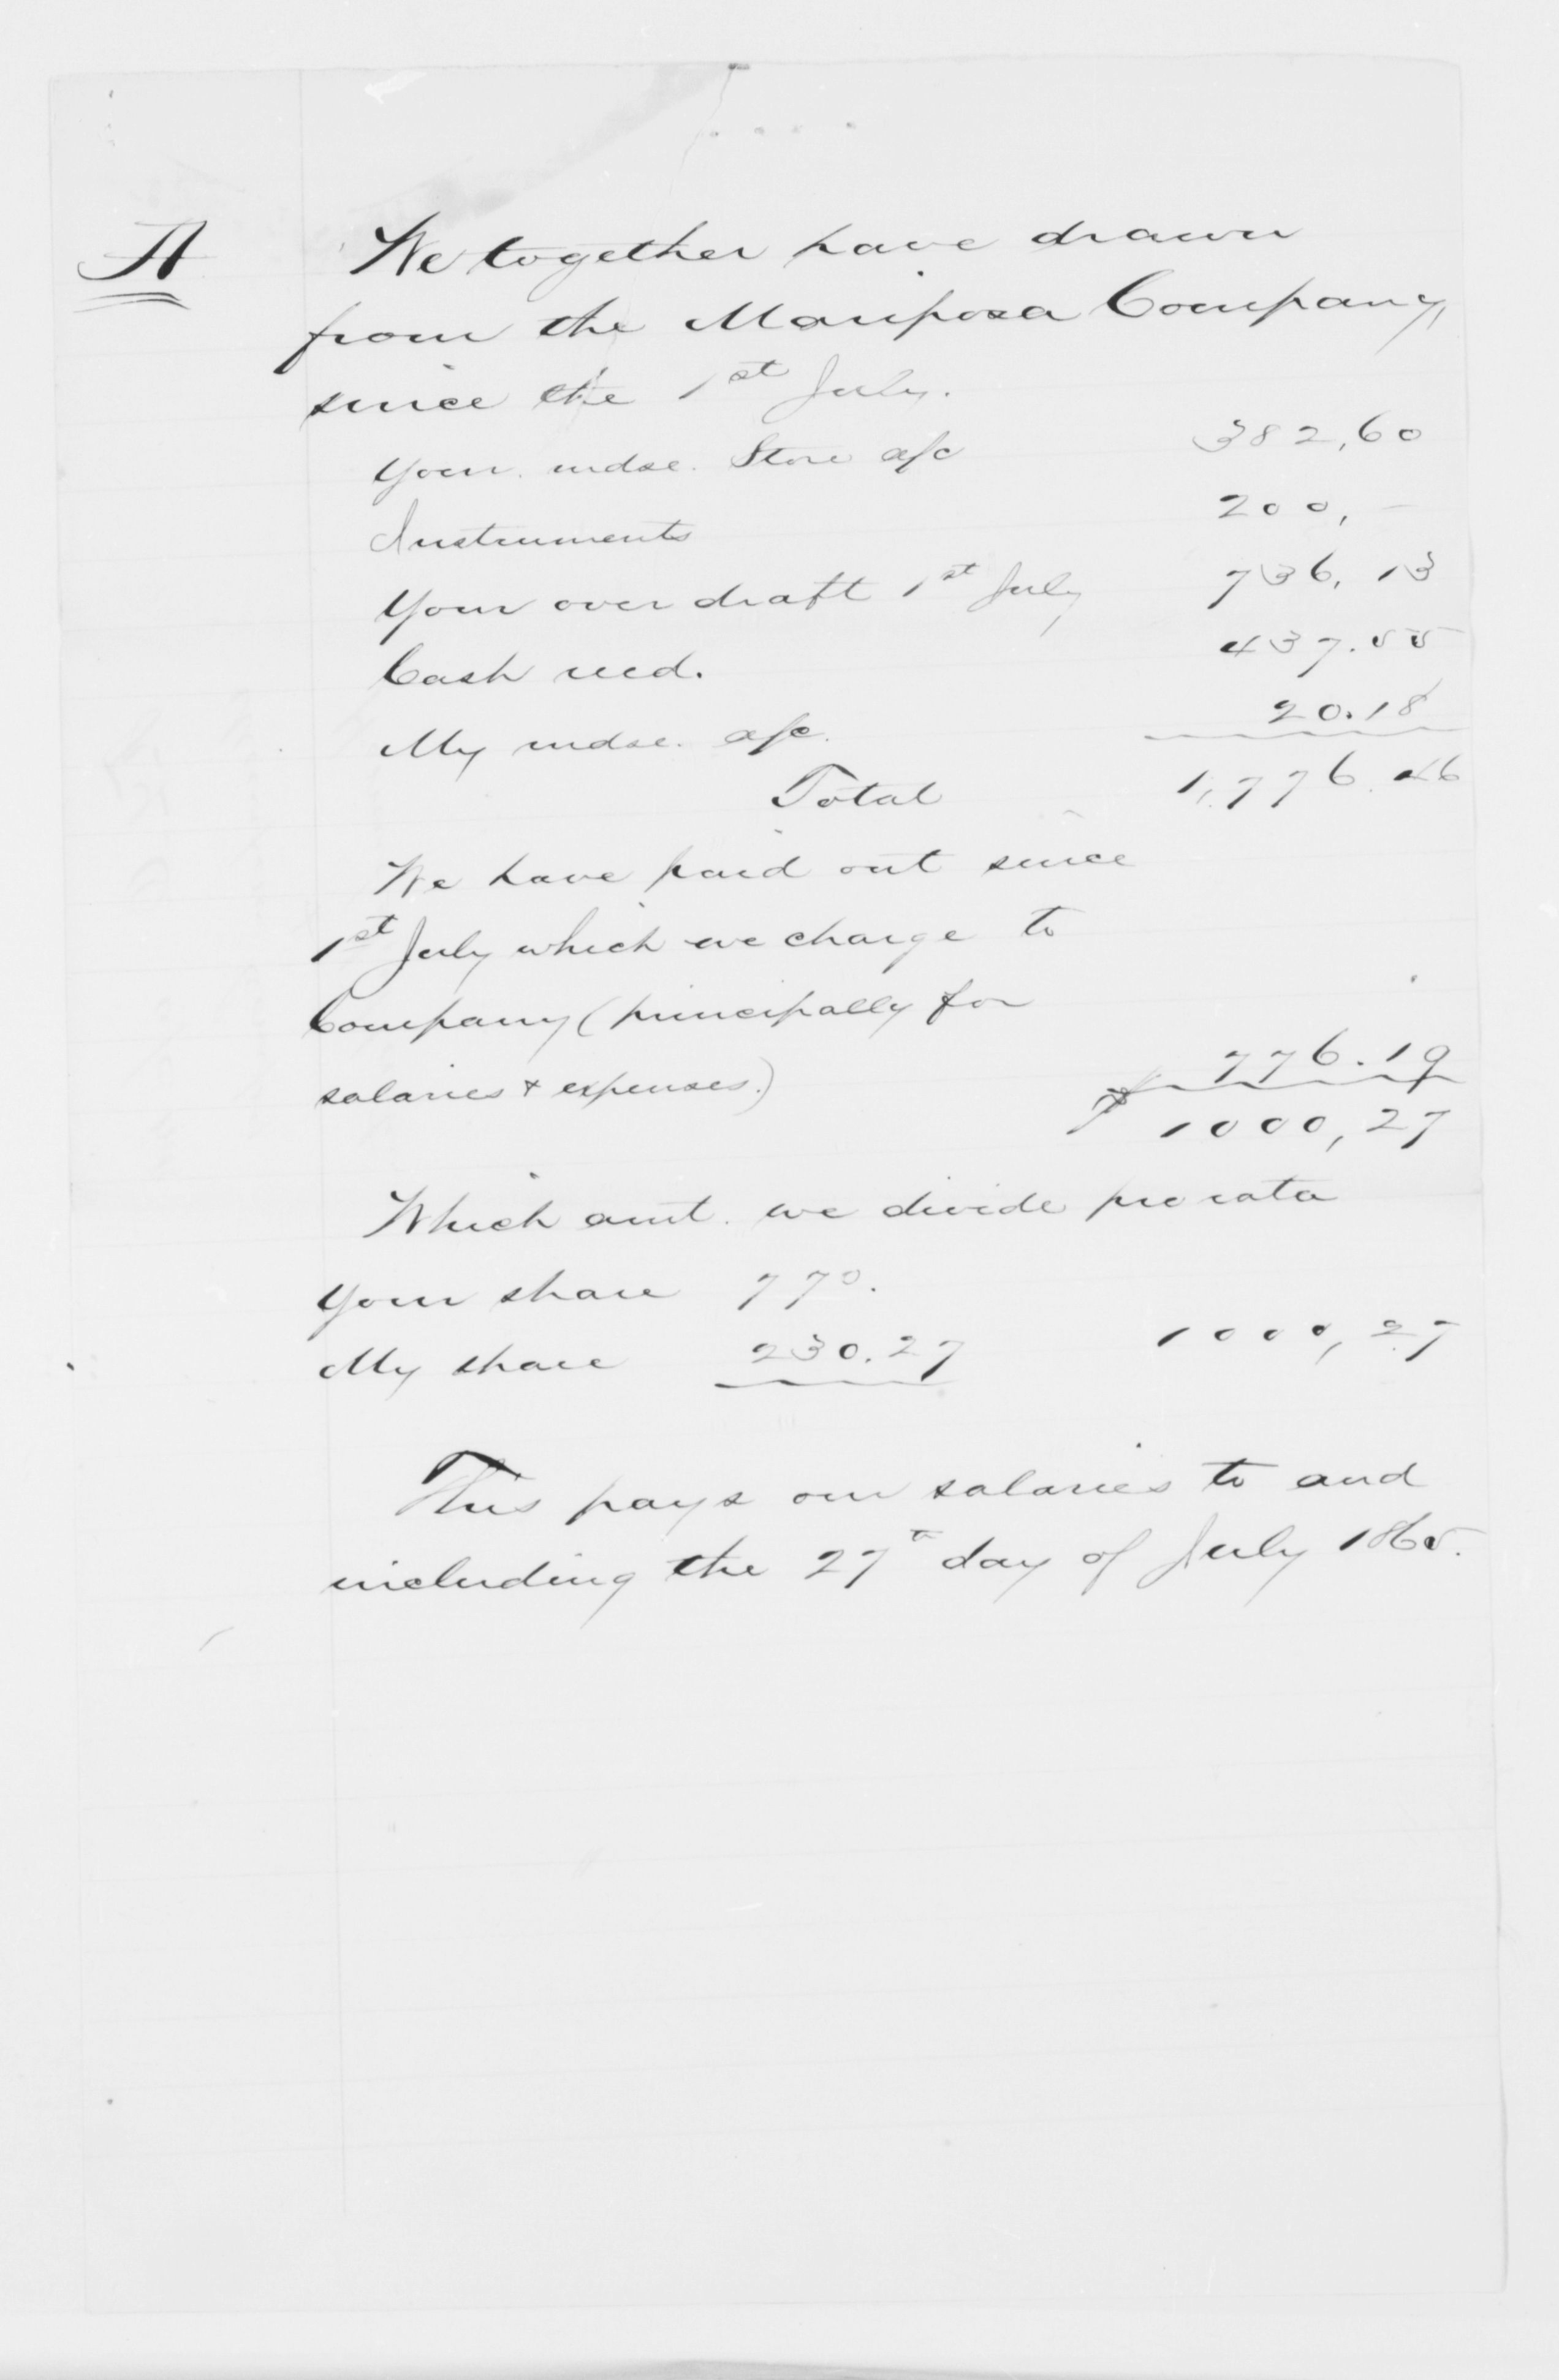 A
We together have drawn
from the Mariposa Company,
since the 1st July.
Your mdse. Store a/c 382,60
Instruments 200,–
Your over draft 1st July 736,13
Cash recd. 437.55
My mdse. a/c. 20.18
Total 1,776.46
We have paid out since
1st July which we charge to
Company (principally for
salaries & expenses.) 776.19
$ 1000,27
Which amt. we divide pro rata
Your share 770.
My share 230.27 1000,27
This pays our salaries to and
including the 27th day of July 1865.